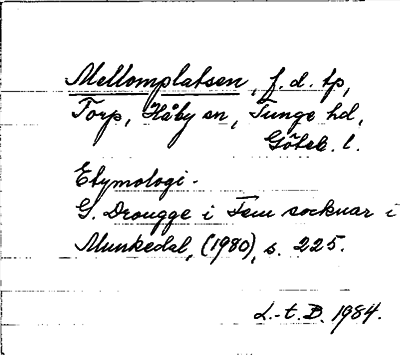 Mellomplatsen, f.d. tp,
Torp, Håby sn, Tunge hd,
Göteb. l.
Etymologi -
G. Drougge i Fem socknar i
Munkedal, (1980), s. 225.
L.-t. D. 1984.